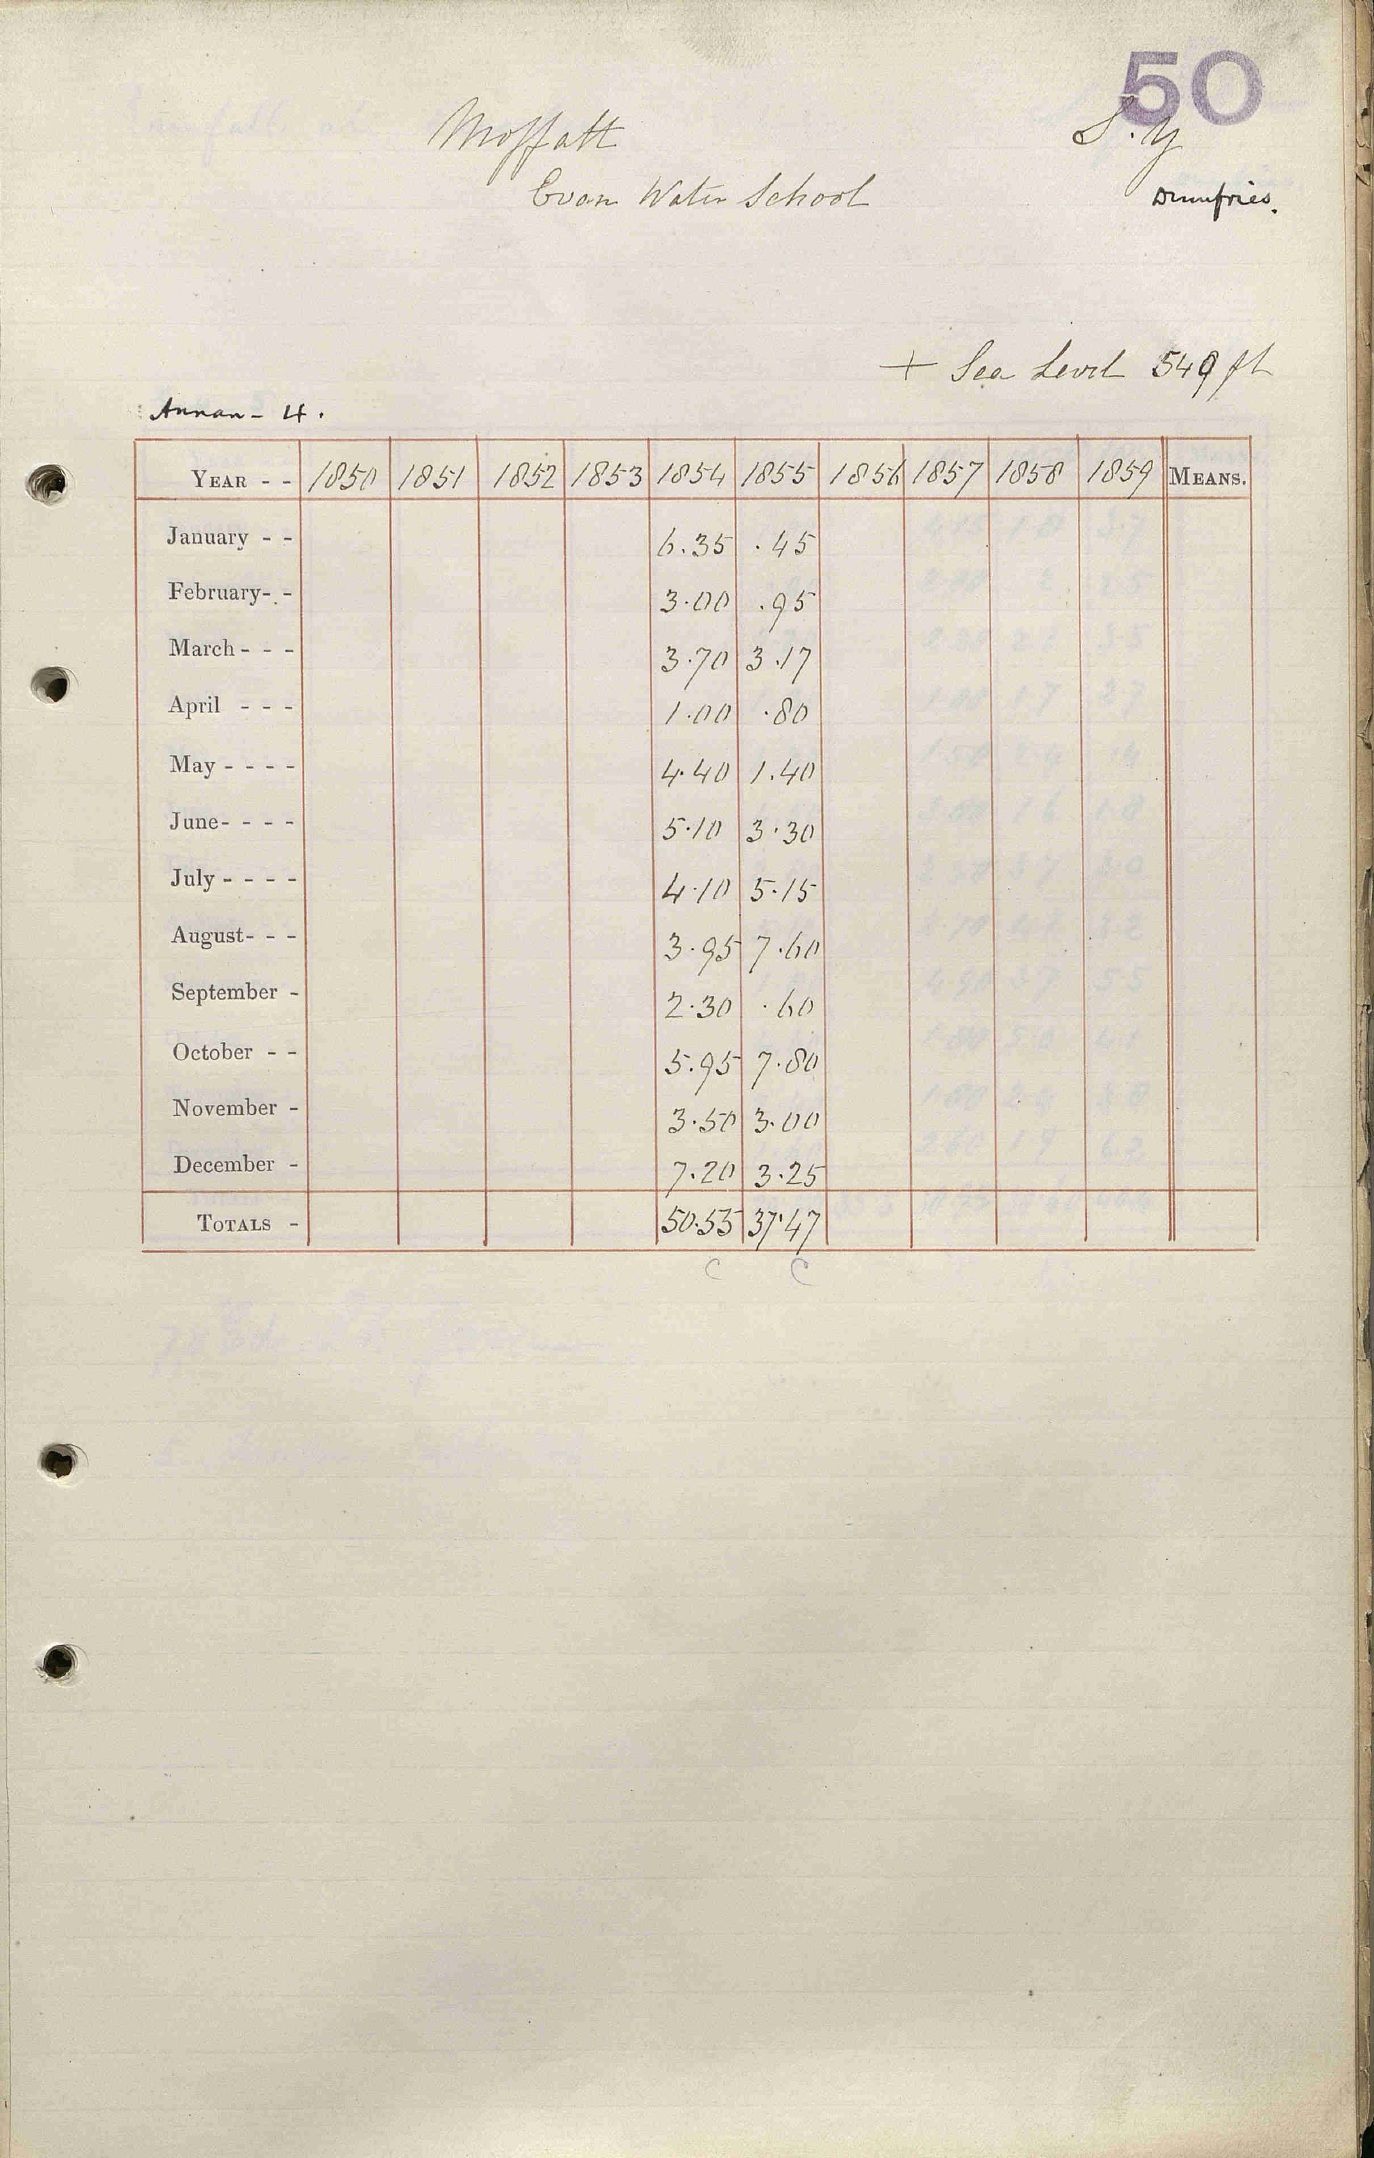 50
Moffatt S. Y
Evan Water School Dumfries.
+ Sea Level 549 ft
Annan - 4.
YEAR - - 1850 1851 1852 1853 1854 1855 1856 1857 1858 1859 MEANS.
January - - 6.35 .45
February - - 3.00 .95
March - - - 3.70 3.17
April - - - 1.00 .80
May - - - - 4.40 1.40
June - - - - 5.10 3.30
July - - - - 4.10 5.15
August - - - 3.95 7.60
September - 2.30 .60
October - - 5.95 7.80
November - 3.50 3.00
December - 7.20 3.25
TOTALS - 50.55 37.47
C C